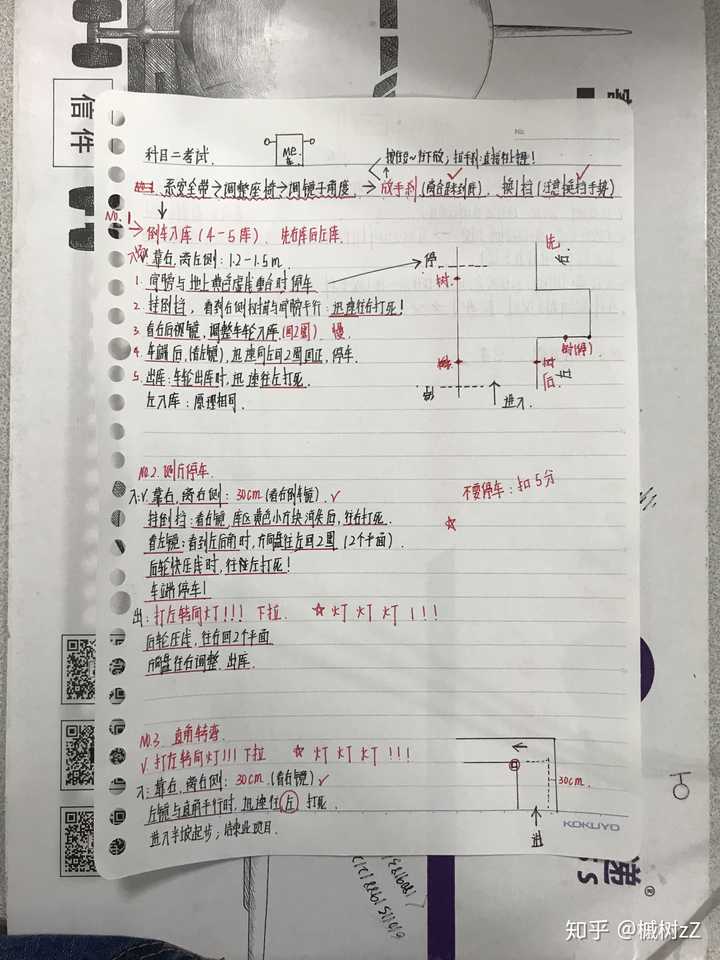 信件
No.
科目二考试.
系安全带→调整座椅→调镜子角度,→放手刹(离合踩到底), 换挡(注意换挡手势)
NO.1
→倒车入库(4-5库). 先右库后左库.
靠右,离左侧:1.2-1.5m.
1. 肩膀与地上黄色虚线重合时停车
2. 挂倒挡, 迅速往右打死!
3. 看右后视镜,调整车轮入库,(回2圈) 慢
4. 车端后,(看左镜),迅速向左回2圈回正,停车.
5. 出库:车轮出库时,迅速往左打死.
左入库:原理相同.
停
先
右
树
树(停)
左
后
进入.
NO.2. 侧方停车.
入:V.靠右,离右侧:30cm(看右倒车镜).✓
不要停车:扣5分
挂倒挡:看右镜,库区黄色小方块消失后,往右打死.
☆
看左镜:看到左后角时,方向盘往左回2圈(2个平面).
后轮快压库时,往左打死!
车端停车!
出:打左转向灯!!! 下拉. ☆灯 灯 灯 !!!
后轮压库,往右回2个平面
方向盘往右调整.出库.
NO.3. 直角转弯.
V.打左转向灯!!! 下拉 ☆灯 灯 灯 !!!
入:靠右,离右侧:30cm.(看右镜)✓
左镜与直角平行时,迅速往左打死.
进入半坡起步;结束此项目.
30cm
进
KOKUYO
递
®
知乎 @槭树zZ